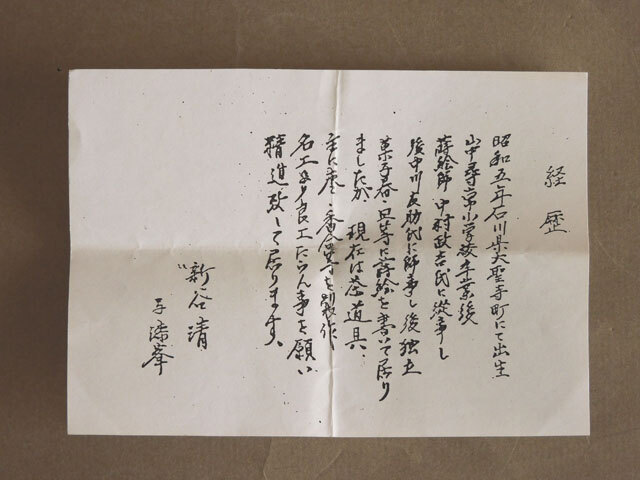 経歴
昭和五年石川県大聖寺町にて出生
山中尋常小学校卒業後
蒔絵師 中村政吉氏に従事し
後中川友助氏に師事し後独立
菓子器・皿等に蒔絵を書いて居り
ましたが、現在は茶道具、
主に棗・香合等を製作し
名工より良工たらん事を願い
精進致して居ります。
新谷清
〃 峯